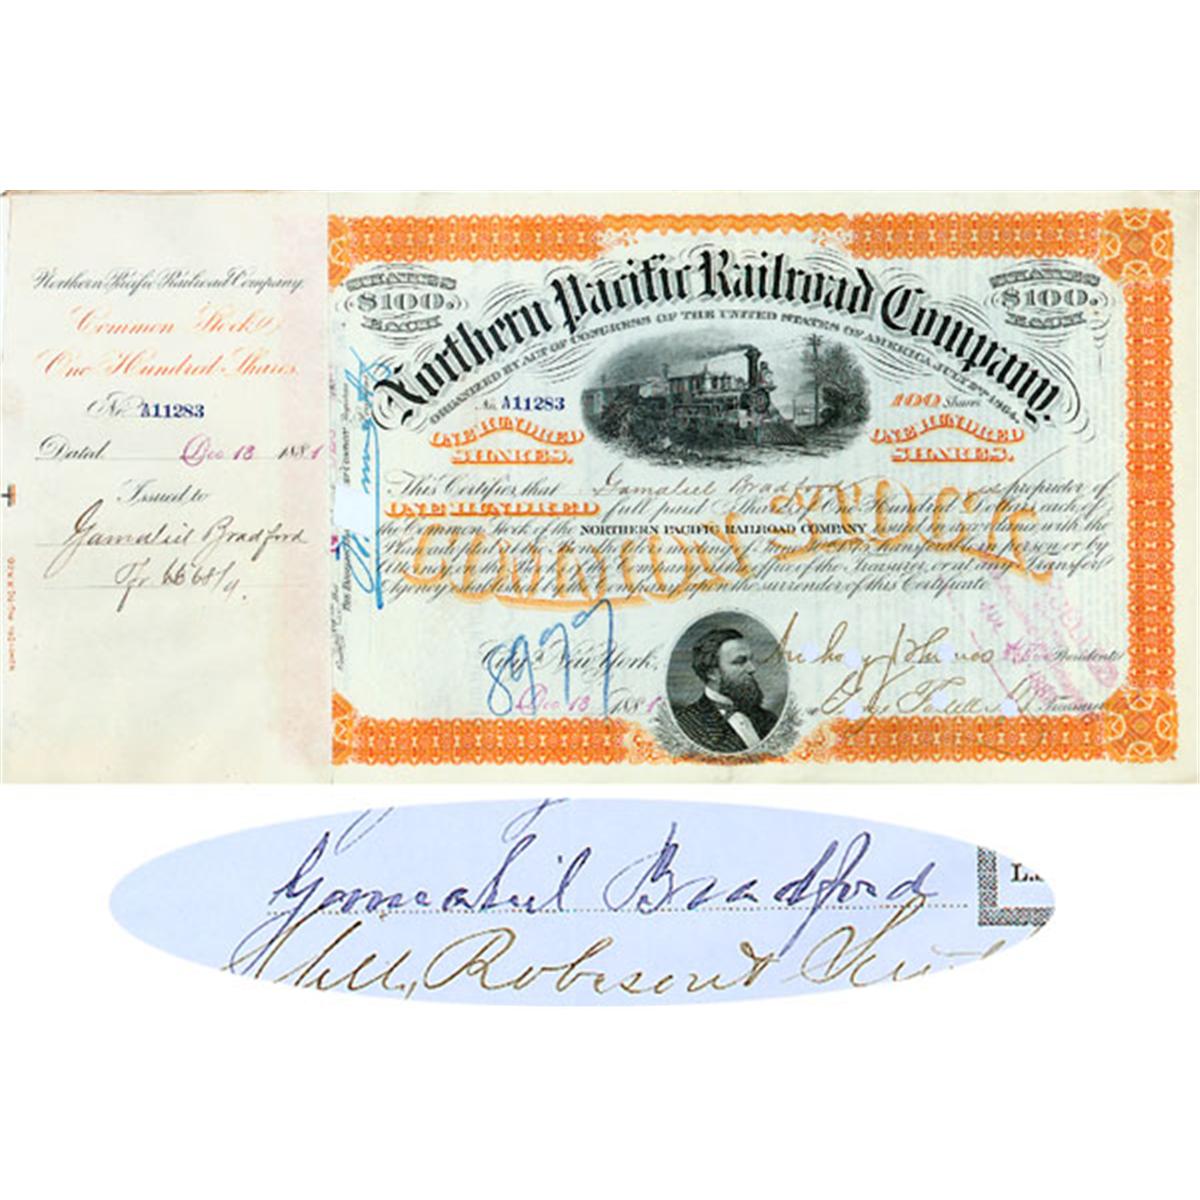 Northern Pacific Railroad Company.
Common Stock
One Hundred Shares.
No. A11283
Dated Dec 13 1881
Issued to
Gamaliel Bradford
SHARES
$100.
EACH
Northern Pacific Railroad Company.
SHARES
$100.
EACH
ORGANIZED BY ACT OF CONGRESS OF THE UNITED STATES OF AMERICA, JULY 2ND 1864.
No. A11283
100 Shares
ONE HUNDRED
SHARES.
ONE HUNDRED
SHARES.
This Certifies that Gamaliel Bradford is proprietor of
ONE HUNDRED full paid Shares of One Hundred Dollars each of
the Common Stock of the NORTHERN PACIFIC RAILROAD COMPANY issued in accordance with the
transferable in person or by
the Company at the office of the Treasurer, or at any Transfer
Agency established by the Company upon the surrender of this Certificate
COMMON STOCK
89777
City of New York,
Dec 13 1881
President
Treasurer
Gamaliel Bradford
L.S.
Robeson &